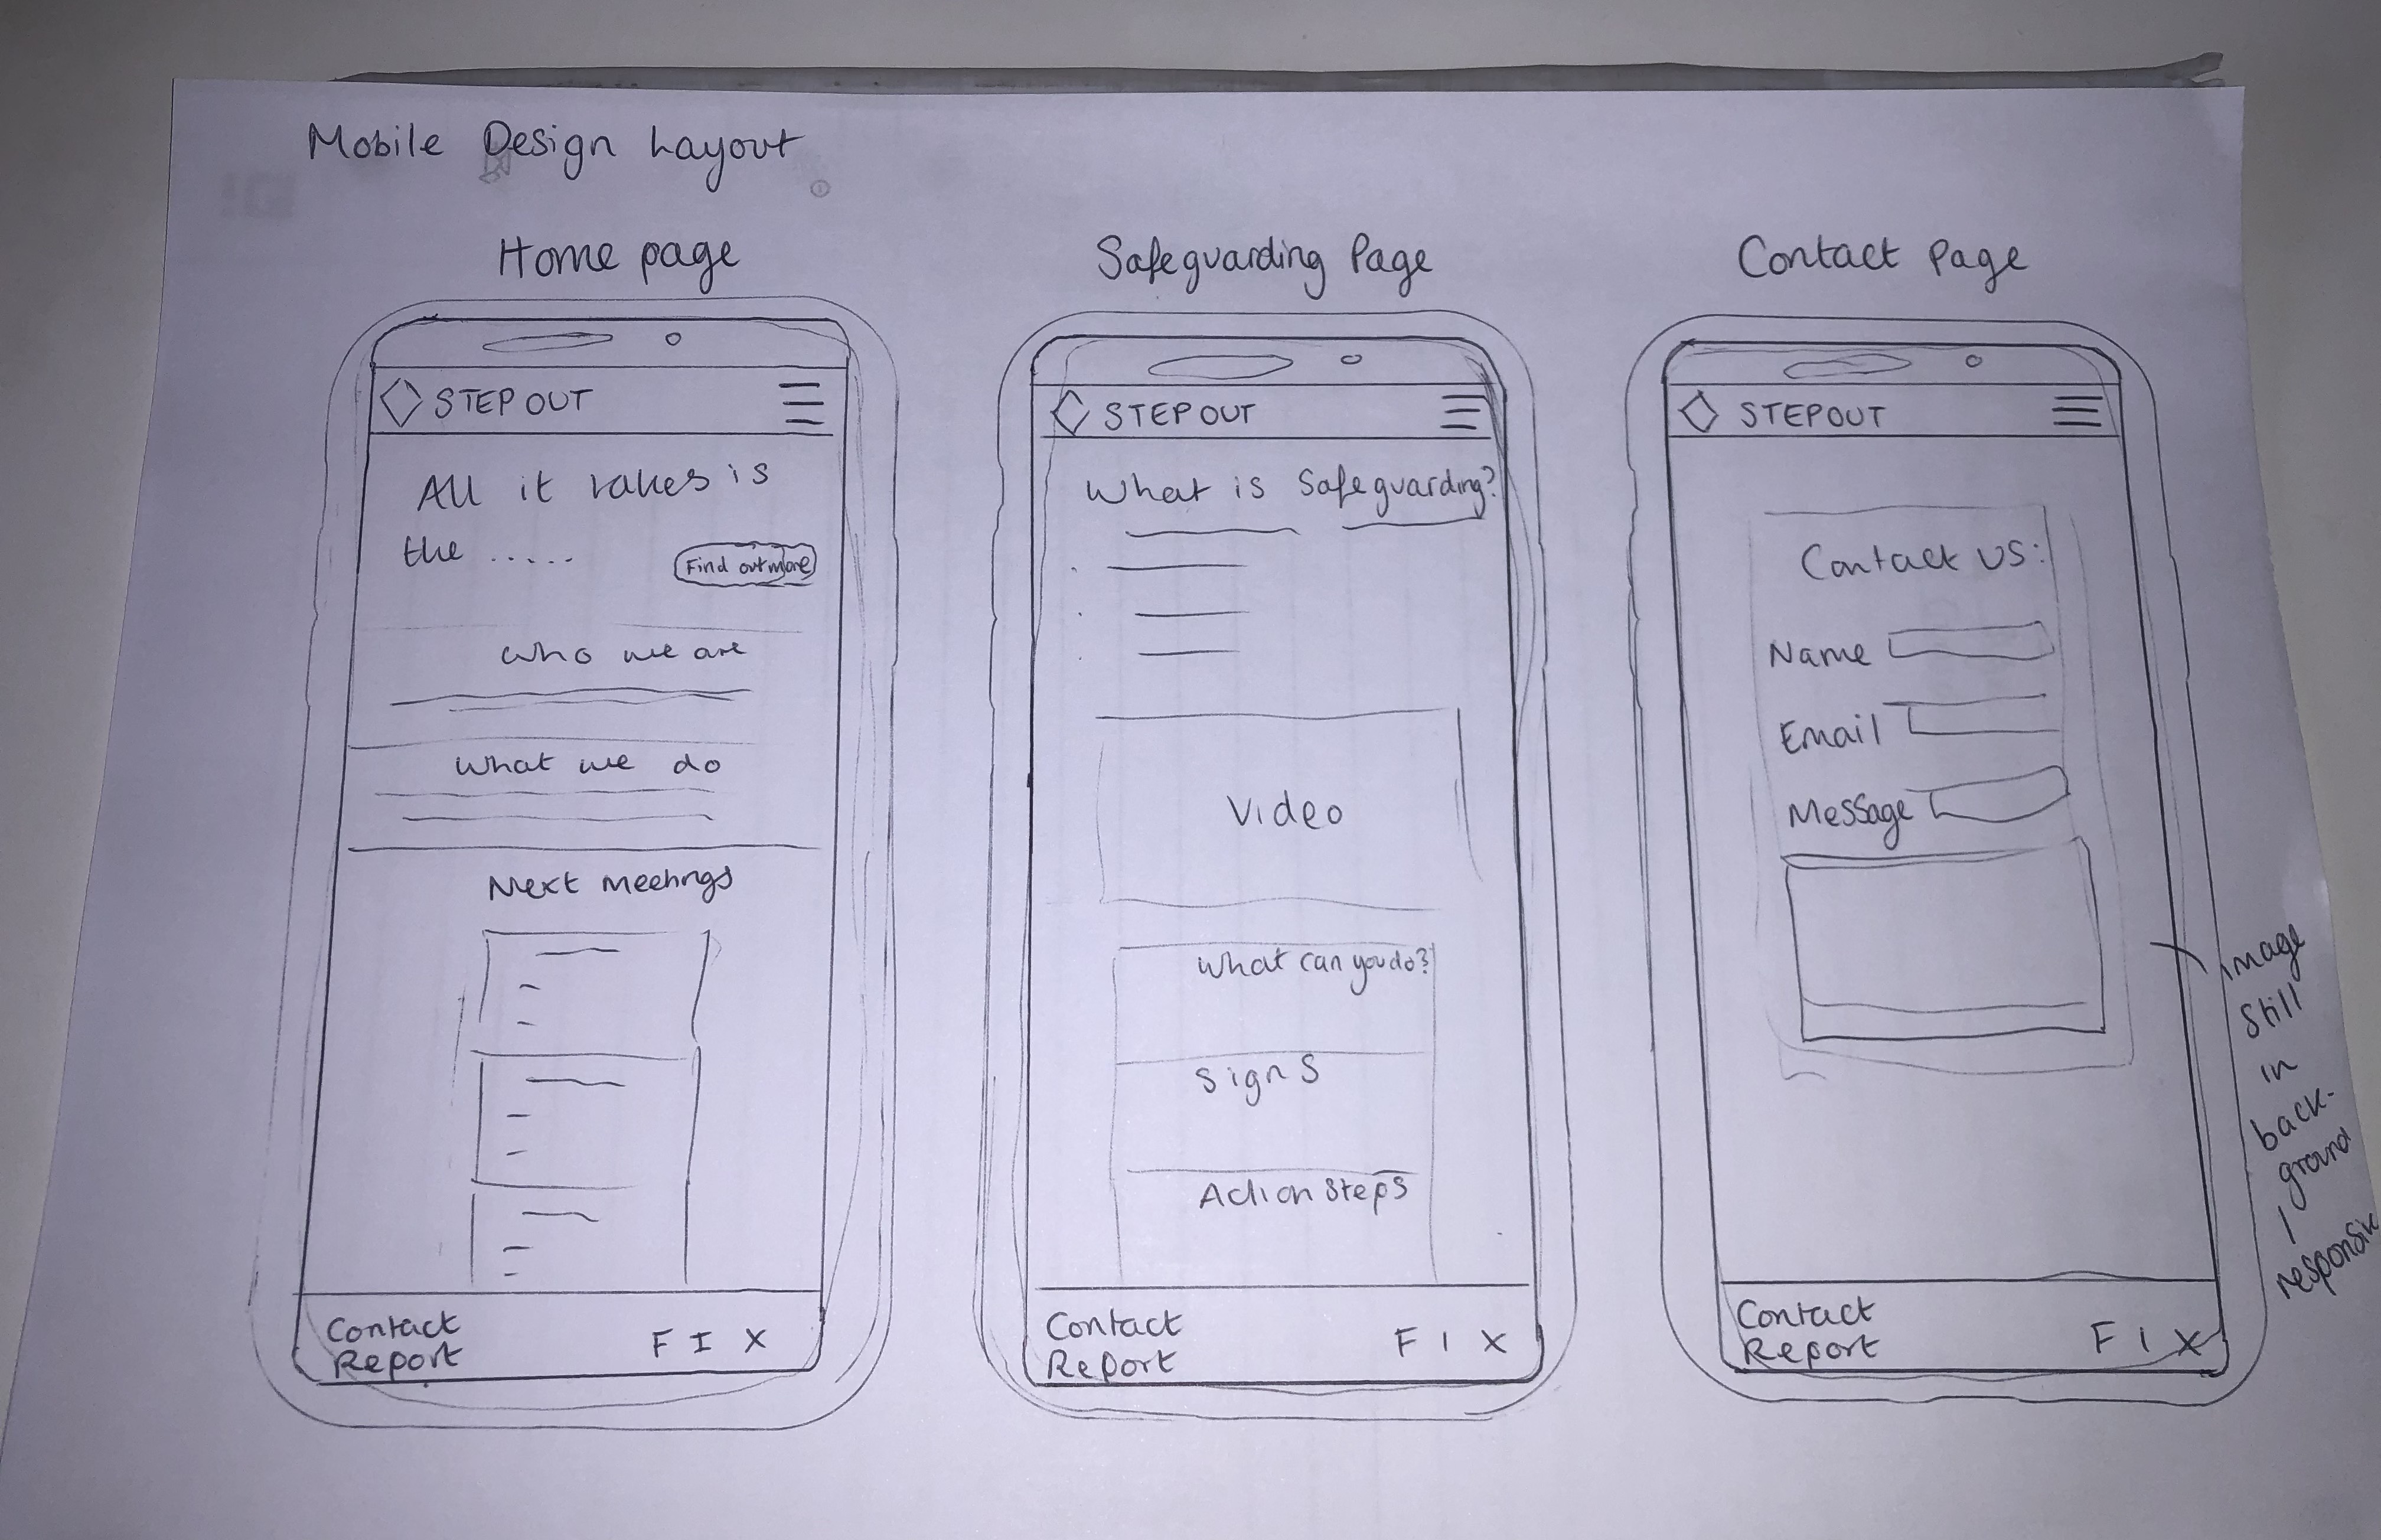 Mobile Design Layout
Home page
STEP OUT
All it takes is
the .....
Find out more
who we are
what we do
Next meetings
Contact
Report
F I X
Safeguarding Page
STEP OUT
What is Safeguarding?
Video
What can you do?
Signs
Action Steps
Contact
Report
F I X
Contact Page
STEPOUT
Contact US:
Name
Email
Message
Contact
Report
F I X
image
still
in
back-
ground
/
responsiv